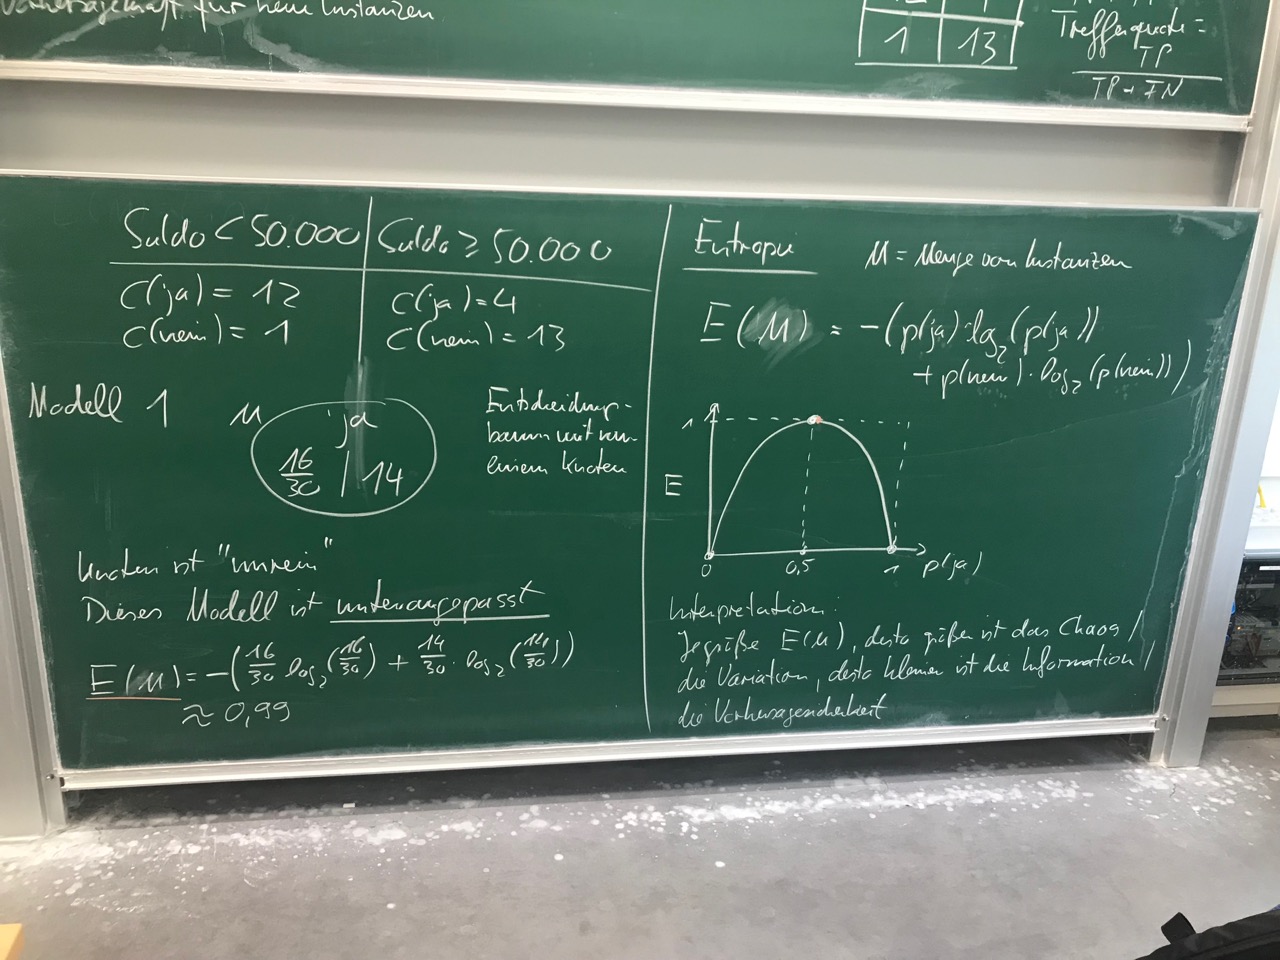 Vorhersagekraft für neue Instanzen
1 13
Trefferquote =
TP
TP + FN
Saldo < 50.000
C(ja) = 12
C(nein) = 1
Saldo ≥ 50.000
C(ja) = 4
C(nein) = 13
Modell 1
M
ja
16/30 | 14
Entscheidungs-
baum mit nur
einem Knoten
Knoten ist "unrein"
Dieses Modell ist unterangepasst
E(M) = -(16/30 log₂(16/30) + 14/30 · log₂(14/30))
≈ 0,99
Entropie
M = Menge von Instanzen
E(M) = -(p(ja) · log₂(p(ja))
+ p(nein) · log₂(p(nein)))
1
E
0 0,5 1 p(ja)
Interpretation:
Je größe E(M), desto größer ist das Chaos /
die Variation, desto kleiner ist die Information /
die Vorhersagesicherheit